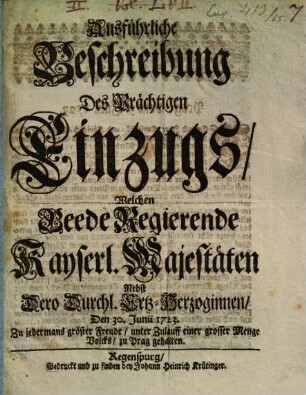 Ausführliche
Beschreibung
Des Prächtigen
Einzugs/
Welchen
Beede Regierende
Kayserl. Majestäten
Nebst
Dero Durchl. Ertz-Herzoginnen/
Den 30. Junii 1723.
Zu jedermans gröster Freude/ unter Zulauff einer grosser Menge
Volcks/ zu Prag gehalten.
Regenspurg/
Gedruckt und zu finden bey Johann Heinrich Krütinger.